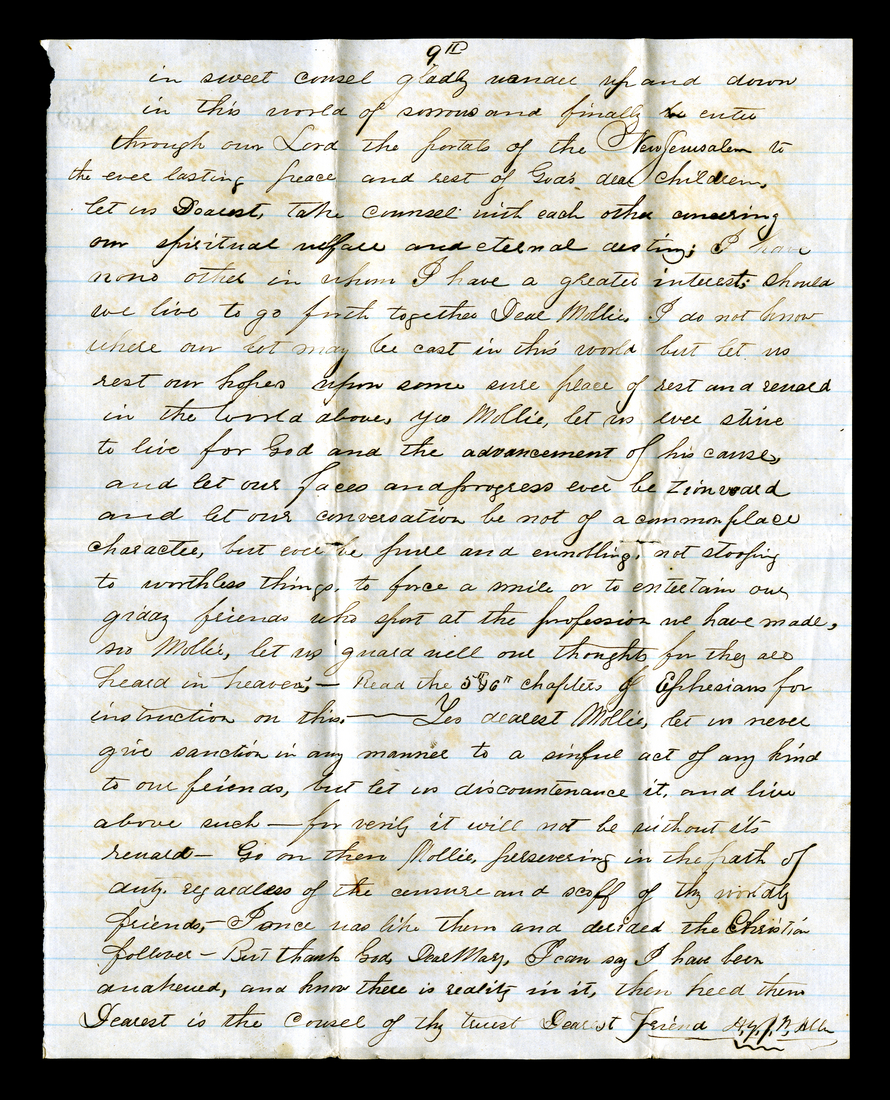 9th
in sweet counsel gladly wander up and down
in this world of sorrows and finally to enter
through our Lord the portals of the New Jerusalem to
the ever lasting peace and rest of God's dear children,
let us Dearest, take counsel with each other concerning
our spiritual wellfare and eternal destiny; I have
none other in whom I have a greater interest; should
we live to go forth together Dear Mollie, I do not know
where our lot may be cast in this world but let us
rest our hopes upon some sure place of rest and reward
in the world above, yes Mollie, let us ever strive
to live for God and the advancement of his cause,
and let our faces and progress ever be Zionward
and let our conversation be not of a commonplace
character, but ever be pure and ennobling, not stooping
to worthless things, to force a smile or to entertain our
giddy friends who sport at the profession we have made,
no Mollie, let us guard well our thoughts for they are
heard in heaven; — Read the 5th & 6th chapters of Ephesians for
instruction on this. — Yes dearest Mollie, let us never
give sanction in any manner to a sinful act of any kind
to our friends, but let us discountenance it, and live
above such — for verily it will not be without its
reward — Go on then Mollie, persevering in the path of
duty regardless of the censure and scoff of thy worldly
friends, — I once was like them and derided the Christian
follower — But thank God, Dear Mary, I can say I have been
awakened, and know there is reality in it, then heed them
Dearest is the counsel of thy truest Dearest friend